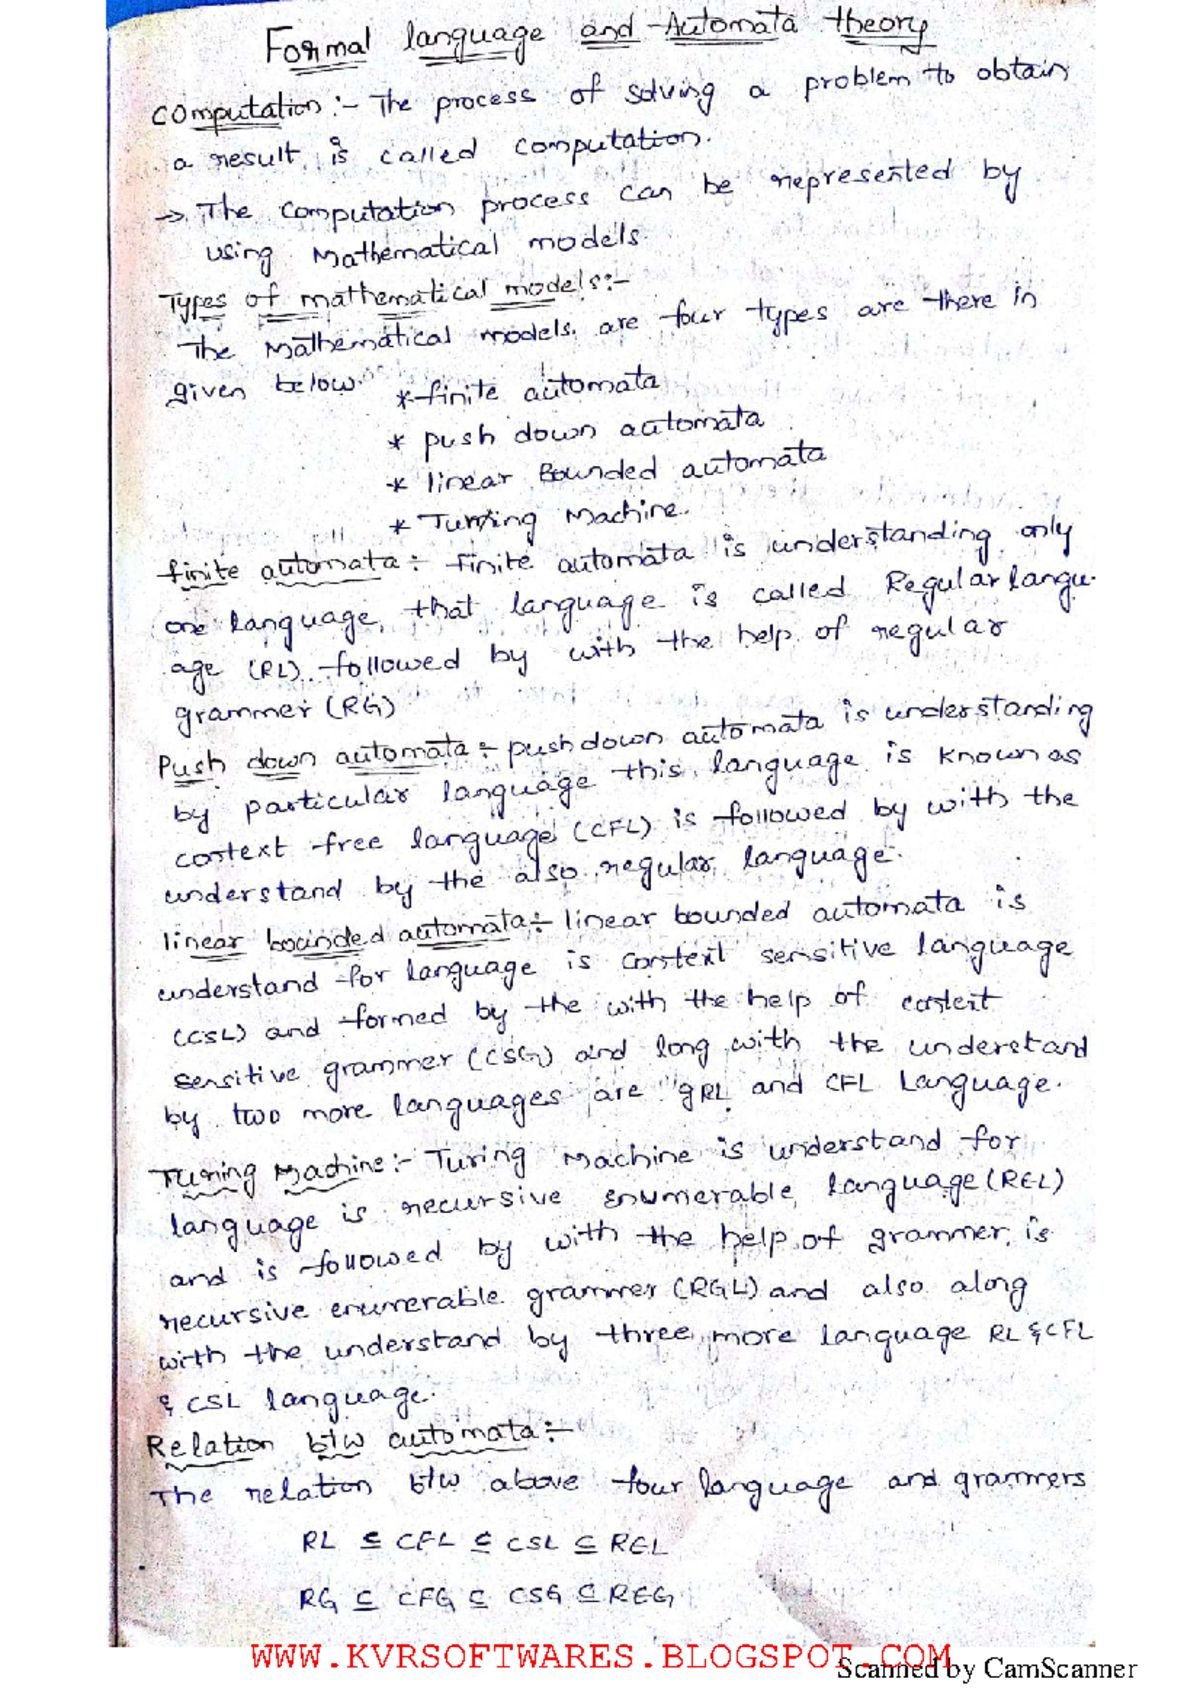 Formal language and Automata theory
computation:- The process of solving a problem to obtain
a result is called computation.
→ The computation process can be represented by
using Mathematical models.
Types of mathematical models:-
The Mathematical models, are four types are there in
given below.
*finite automata
* push down automata
* linear Bounded automata
* Turing Machine.
finite automata:- finite automata is understanding only
one language, that language is called Regular langu-
age (RL) followed by with the help of regular
grammer (RG)
Push down automata:- pushdown automata is understanding
by particular language this language is known as
context free language (CFL) is followed by with the
understand by the also regular language.
linear bounded automata:- linear bounded automata is
understand for language is context sensitive language
(CSL) and formed by the with the help of context
sensitive grammer (CSG) and long with the understand
by two more languages are RL and CFL Language.
Turing Machine:- Turing Machine is understand for
language is recursive enumerable language (REL)
and is followed by with the help of grammer is
recursive enumerable grammer (RGL) and also along
with the understand by three more language RL & CFL
& CSL language.
Relation b/w automata:-
The relation b/w above four language and grammers
RL ⊆ CFL ⊆ CSL ⊆ REL
RG ⊆ CFG ⊆ CSG ⊆ REG
WWW.KVRSOFTWARES.BLOGSPOT.COM
Scanned by CamScanner